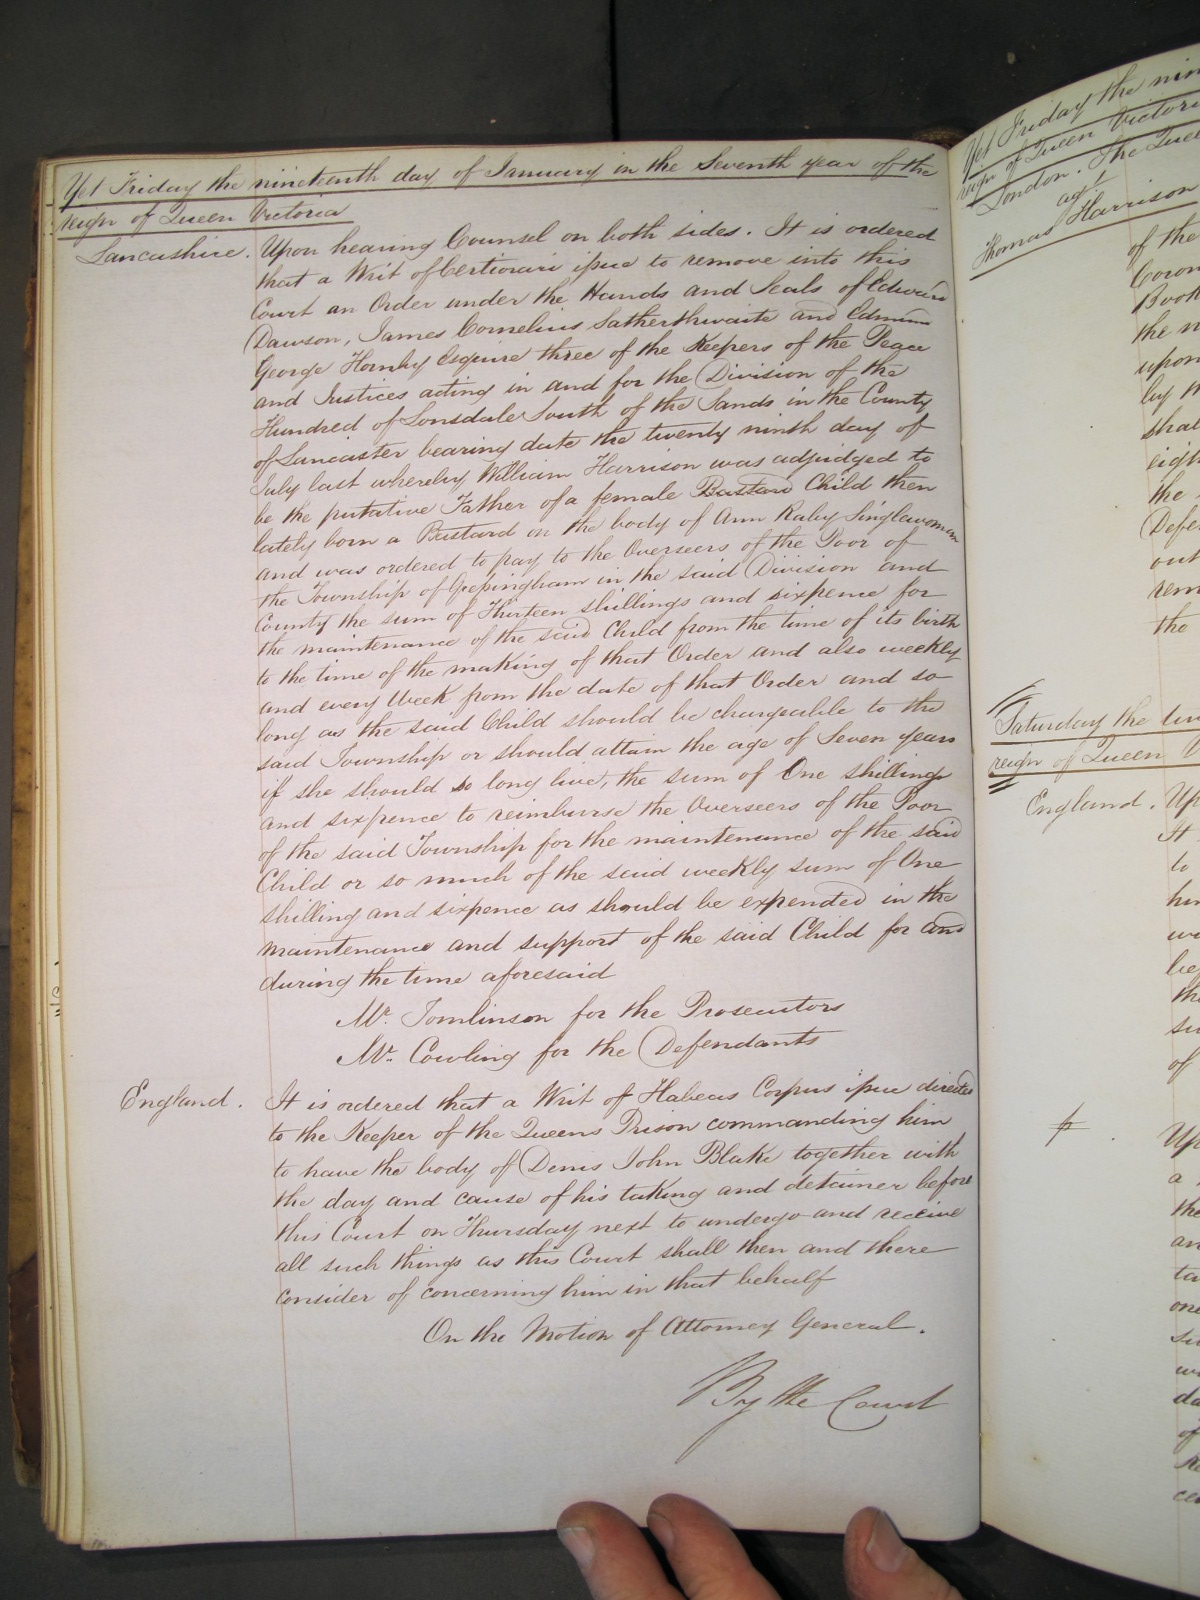 Yet Friday the nineteenth day of January in the Seventh year of the
reign of Queen Victoria
Lancashire. Upon hearing Counsel on both sides. It is ordered
that a Writ of Certiorari issue to remove into this
Court an Order under the Hands and Seals of Edward
Dawson, James Cornelius Satherthwaite and Edmund
George Hornby Esquire three of the Keepers of the Peace
and Justices acting in and for the Division of the
Hundred of Lonsdale South of the Sands in the County
of Lancaster bearing date the twenty ninth day of
July last whereby William Harrison was adjudged to
be the putative Father of a female Bastard Child then
lately born a Bastard on the body of Ann Raby Singlewoman
and was ordered to pay to the Overseers of the Poor of
the Township of Gressingham in the said Division and
County the sum of Thirteen shillings and sixpence for
the maintenance of the said Child from the time of its birth
to the time of the making of that Order and also weekly
and every Week from the date of that Order and so
long as the said Child should be chargeable to the
said Township or should attain the age of Seven years
if she should so long live, the sum of One shilling
and sixpence to reimburse the Overseers of the Poor
of the said Township for the maintenance of the said
Child or so much of the said weekly sum of One
shilling and sixpence as should be expended in the
maintenance and support of the said Child for and
during the time aforesaid
Mr. Tomlinson for the Prosecutors
Mr. Cowling for the Defendants
England. It is ordered that a Writ of Habeas Corpus issue directed
to the Keeper of the Queens Prison commanding him
to have the body of Denis John Blake together with
the day and cause of his taking and detainer before
this Court on Thursday next to undergo and receive
all such things as this Court shall then and there
consider of concerning him in that behalf
On the Motion of Attorney General.
By the Court
Yet Friday the
reign of Queen Victoria
London. The Queen
agt
Thomas Harrison
of the
the
upon
by
the
out
the
Saturday the
reign of Queen
England. Up
It
to
of
Up
a
the